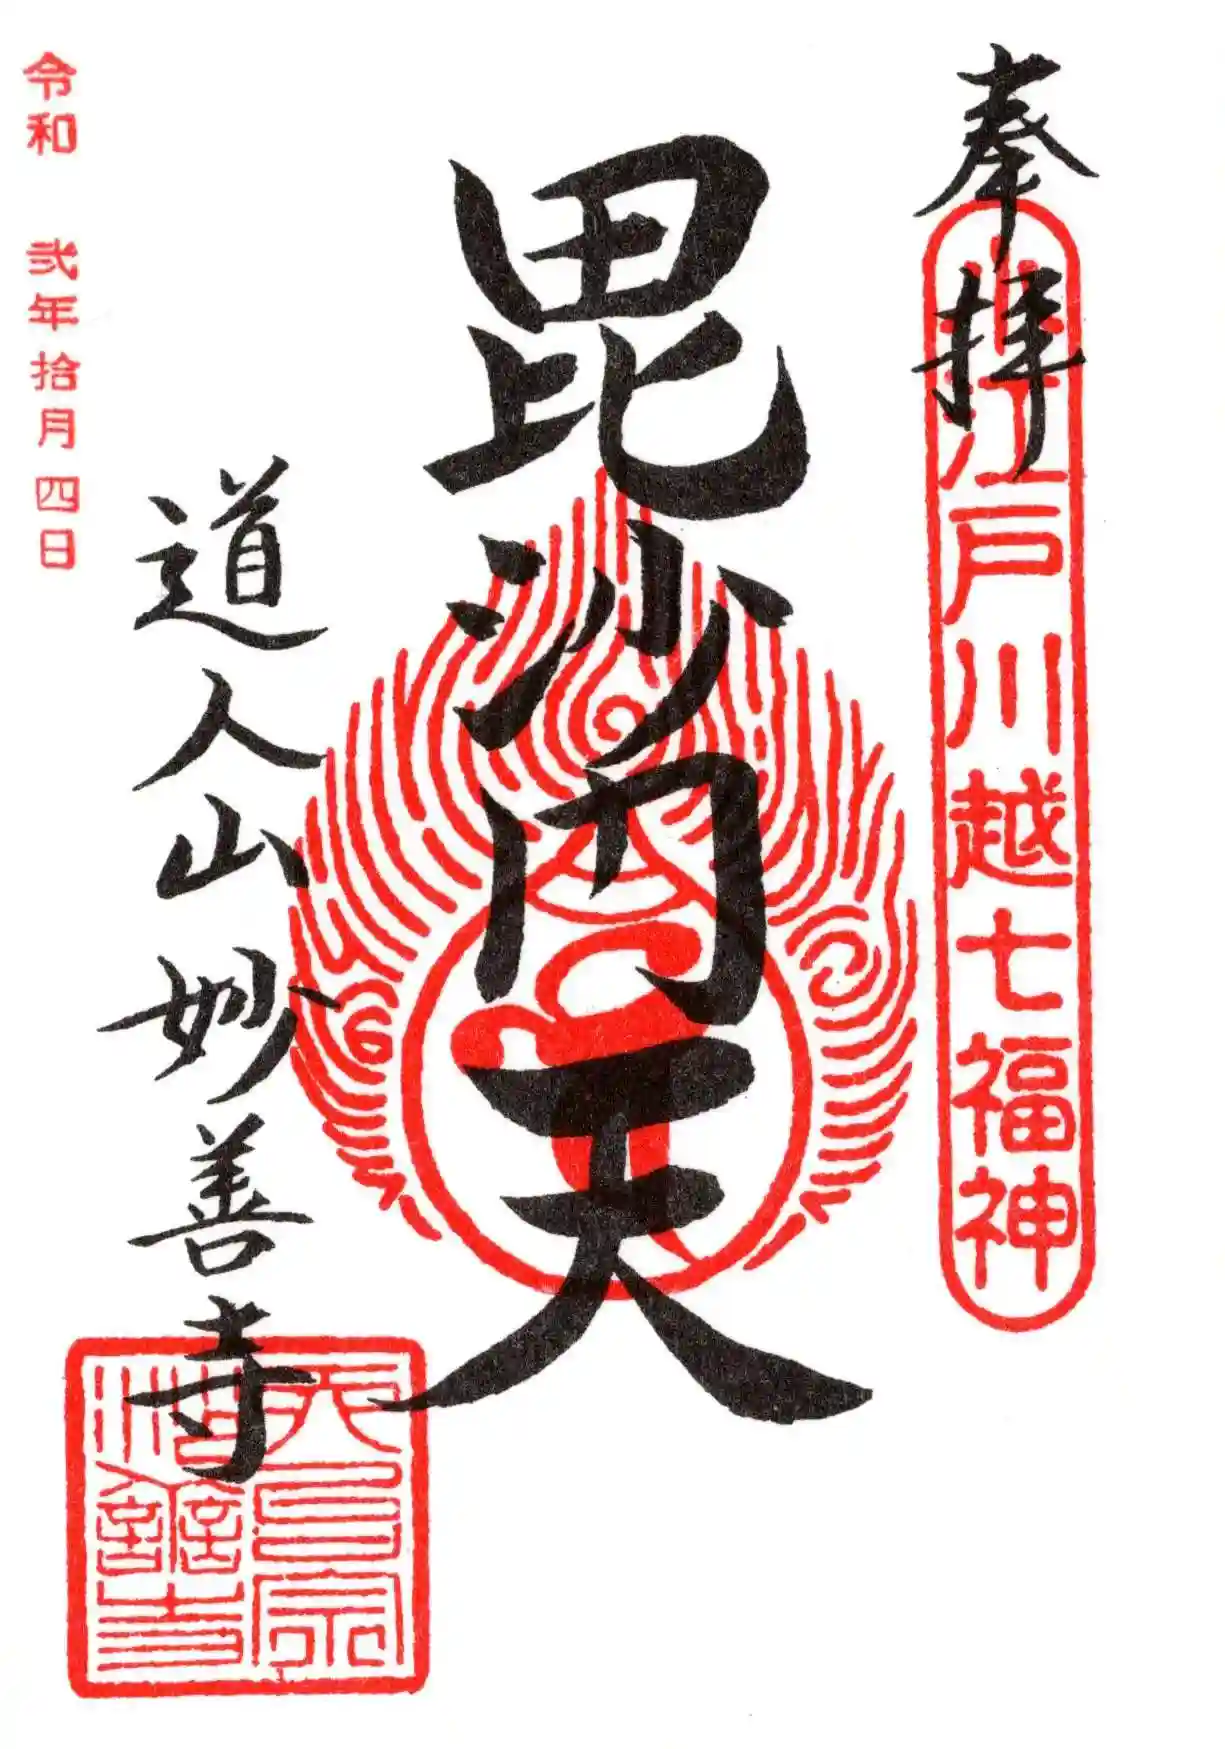 奉拝
小江戸川越七福神
毘沙門天
道人山妙善寺
令和 弐年拾月四日
天台宗
妙善寺